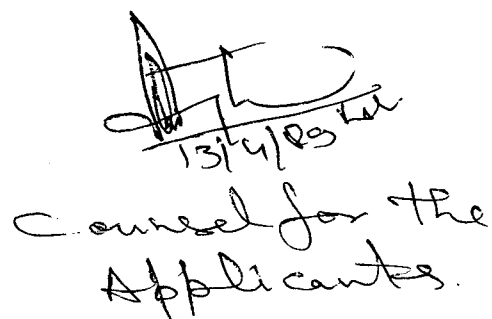 13/4/89
Counsel for the
Applicants.